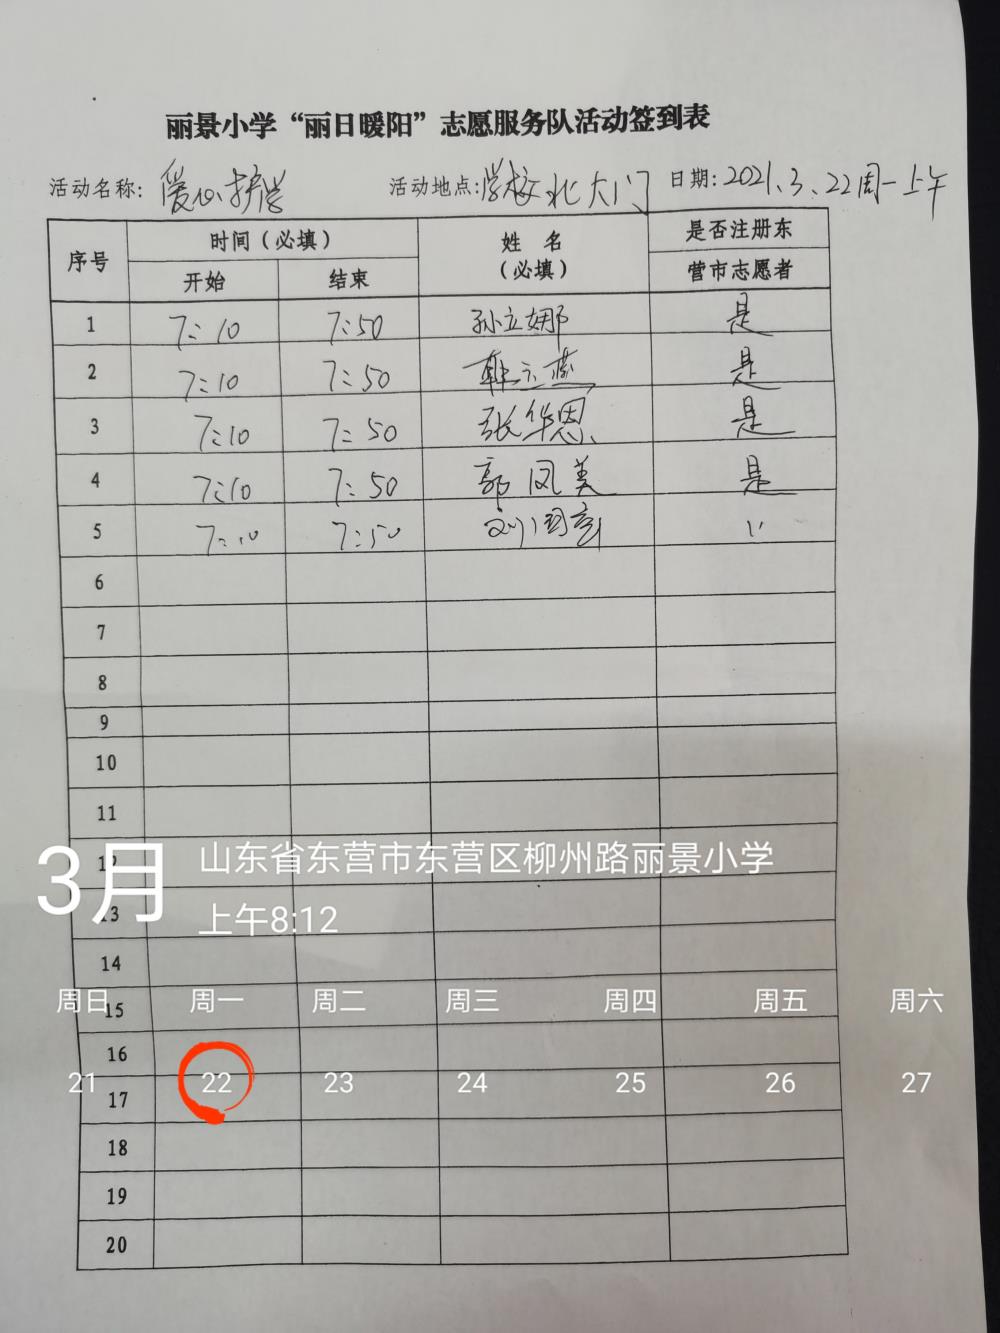 丽景小学“丽日暖阳”志愿服务队活动签到表
活动名称: 爱心护学 活动地点: 学校北大门 日期: 2021.3.22周一上午
序号 时间(必填) 姓名(必填) 是否注册东营市志愿者
开始 结束
1 7:10 7:50 孙立娜 是
2 7:10 7:50 韩立燕 是
3 7:10 7:50 张华恩 是
4 7:10 7:50 郭凤美 是
5 7:10 7:50 刘 〃
6
7
8
9
10
11
12
3月 山东省东营市东营区柳州路丽景小学
13
上午8:12
14
周日 周一 周二 周三 周四 周五 周六
15
16
21 22 23 24 25 26 27
17
18
19
20